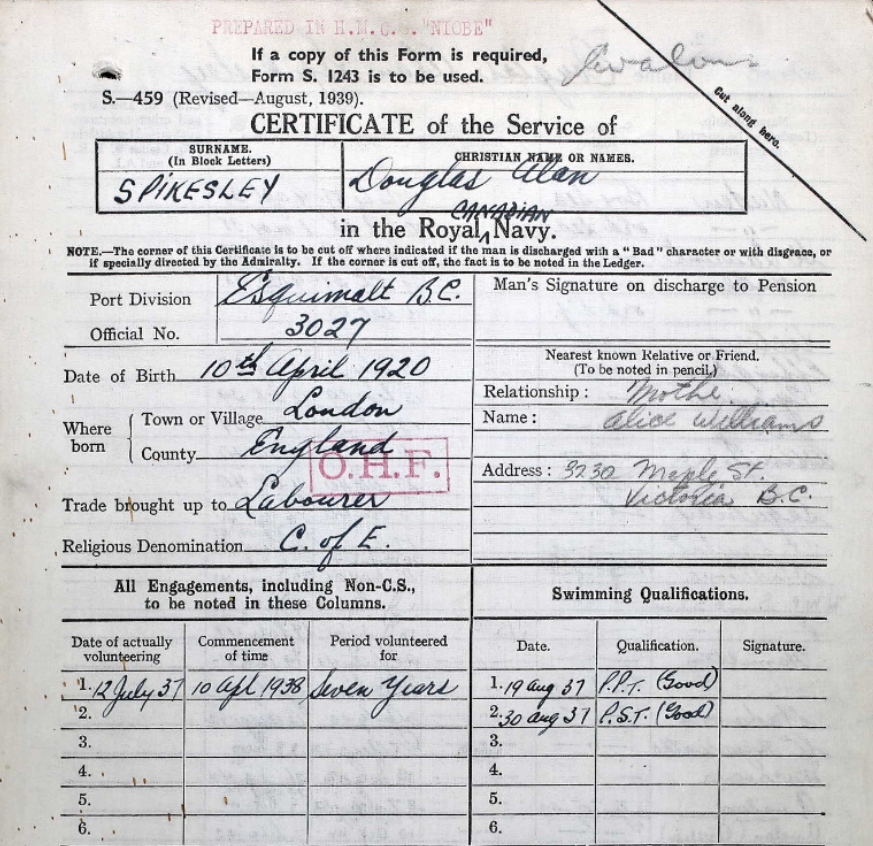 PREPARED IN H.M.C.S. "NIOBE"
If a copy of this Form is required,
Form S. 1243 is to be used.
Avalon
S.—459 (Revised—August, 1939).
Cut along here.
CERTIFICATE of the Service of
SURNAME.
(In Block Letters)
CHRISTIAN NAME OR NAMES.
SPIKESLEY
Douglas Alan
CANADIAN
in the Royal Navy.
NOTE.—The corner of this Certificate is to be cut off where indicated if the man is discharged with a "Bad" character or with disgrace, or
if specially directed by the Admiralty. If the corner is cut off, the fact is to be noted in the Ledger.
Port Division Esquimalt B.C.
Official No. 3027
Man's Signature on discharge to Pension
Date of Birth 10th April 1920
Where born
Town or Village London
County England
O.H.F.
Trade brought up to Labourer
Religious Denomination C. of E.
Nearest known Relative or Friend.
(To be noted in pencil.)
Relationship: Mothe
Name: Alice Williams
Address: 3230 Maple St.
Victoria B.C.
All Engagements, including Non-C.S.,
to be noted in these Columns.
Date of actually volunteering
Commencement of time
Period volunteered for
1. 12 July 37 10 Apl 1938 Seven Years
2.
3.
4.
5.
6.
Swimming Qualifications.
Date. Qualification. Signature.
1. 19 Aug 37 P.P.T. (Good)
2. 30 Aug 37 P.S.T. (Good)
3.
4.
5.
6.